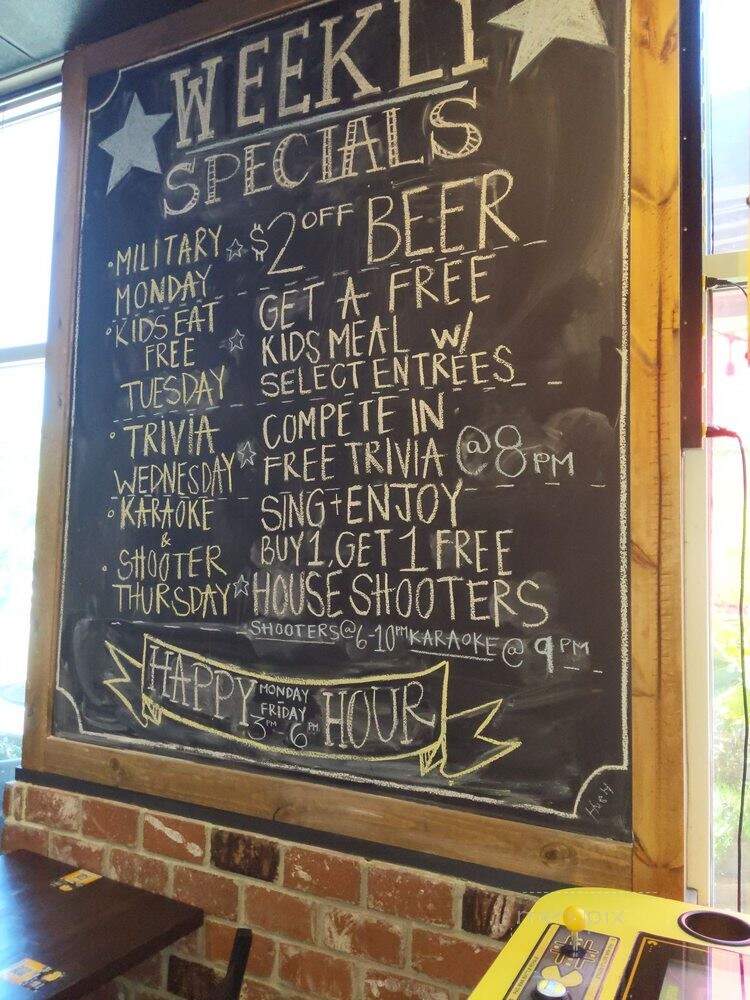 WEEKLY
SPECIALS
• MILITARY MONDAY ☆ $2 OFF BEER
• KIDS EAT FREE TUESDAY ☆ GET A FREE
KIDS MEAL w/
SELECT ENTRÉES
• TRIVIA WEDNESDAY ☆ COMPETE IN
FREE TRIVIA @ 8 PM
• KARAOKE
&
• SHOOTER
THURSDAY ☆ SING + ENJOY
BUY 1, GET 1 FREE
HOUSE SHOOTERS
SHOOTERS @ 6-10 PM KARAOKE @ 9 PM
HAPPY MONDAY FRIDAY 3PM - 6PM HOUR